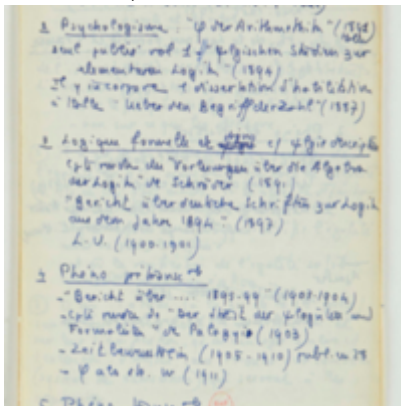 2 Psychologisme : "φ der Arithmethik" (1891
seul publié vol 1 + "ψlogischen Studien zur
elementaren Logik" (1894)
Il y incorpore 1 dissertation d'habilitation
à Halle "Ueber den Begriff der Zahl" (1887)
3 Logique formelle et ψlogie descriptive
cpte rendu des "Vorlesungen über die Algebra
der Logik" de Schröder (1891)
"Bericht über deutsche Schriften zur Logik
aus dem Jahre 1894" (1897)
L.U. (1900-1901)
4 Phéno
- "Bericht über .... 1895-99" (1903-1904)
- cpte rendu de "Der Streit der ψlogisten und
Formalisten" de Palagyi (1903)
- Zeitbewusstsein (1905-1910) publ. en 28
- φ als str. W (1911)
5 Phéno